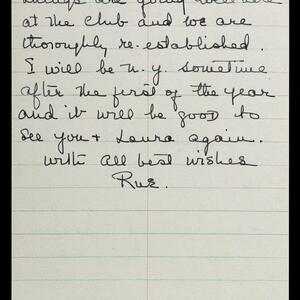 are going well here
at the club and we are
thoroughly re-established.
I will be n.y. sometime
after the first of the year
and it will be good to
see you + Laura again.
with all best wishes
Rue.